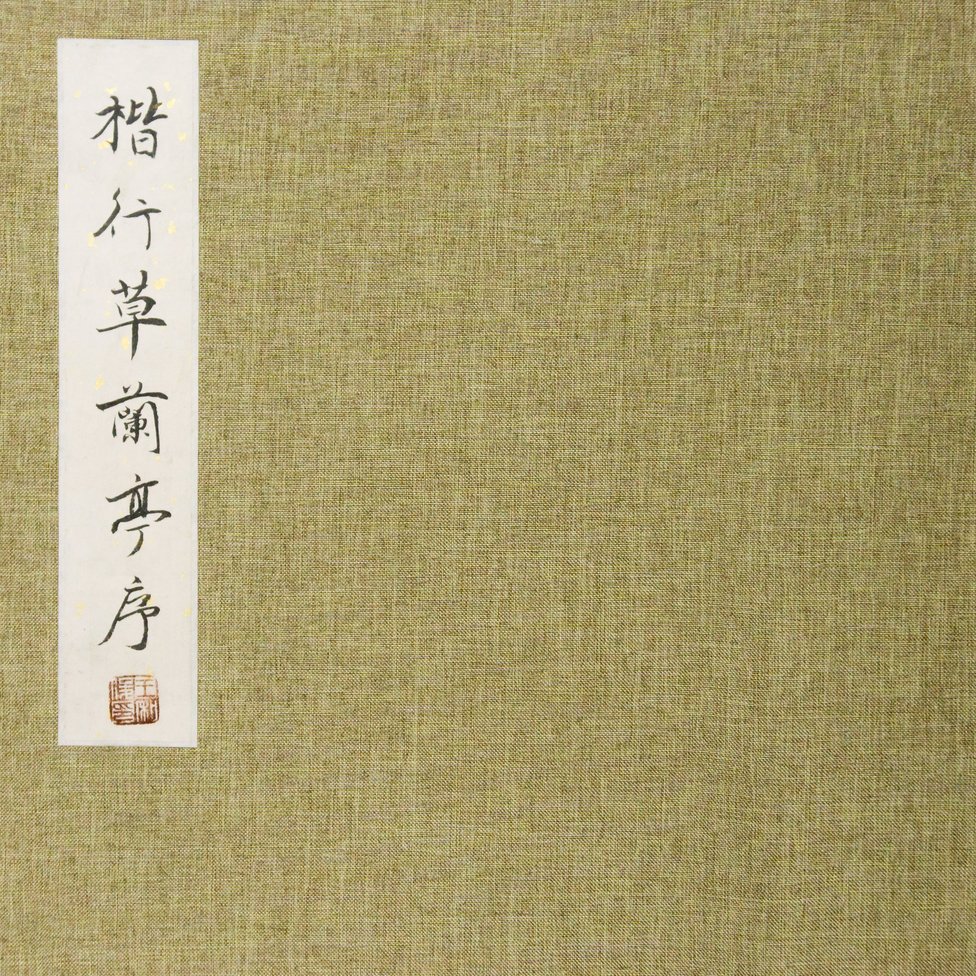 楷行草蘭亭序